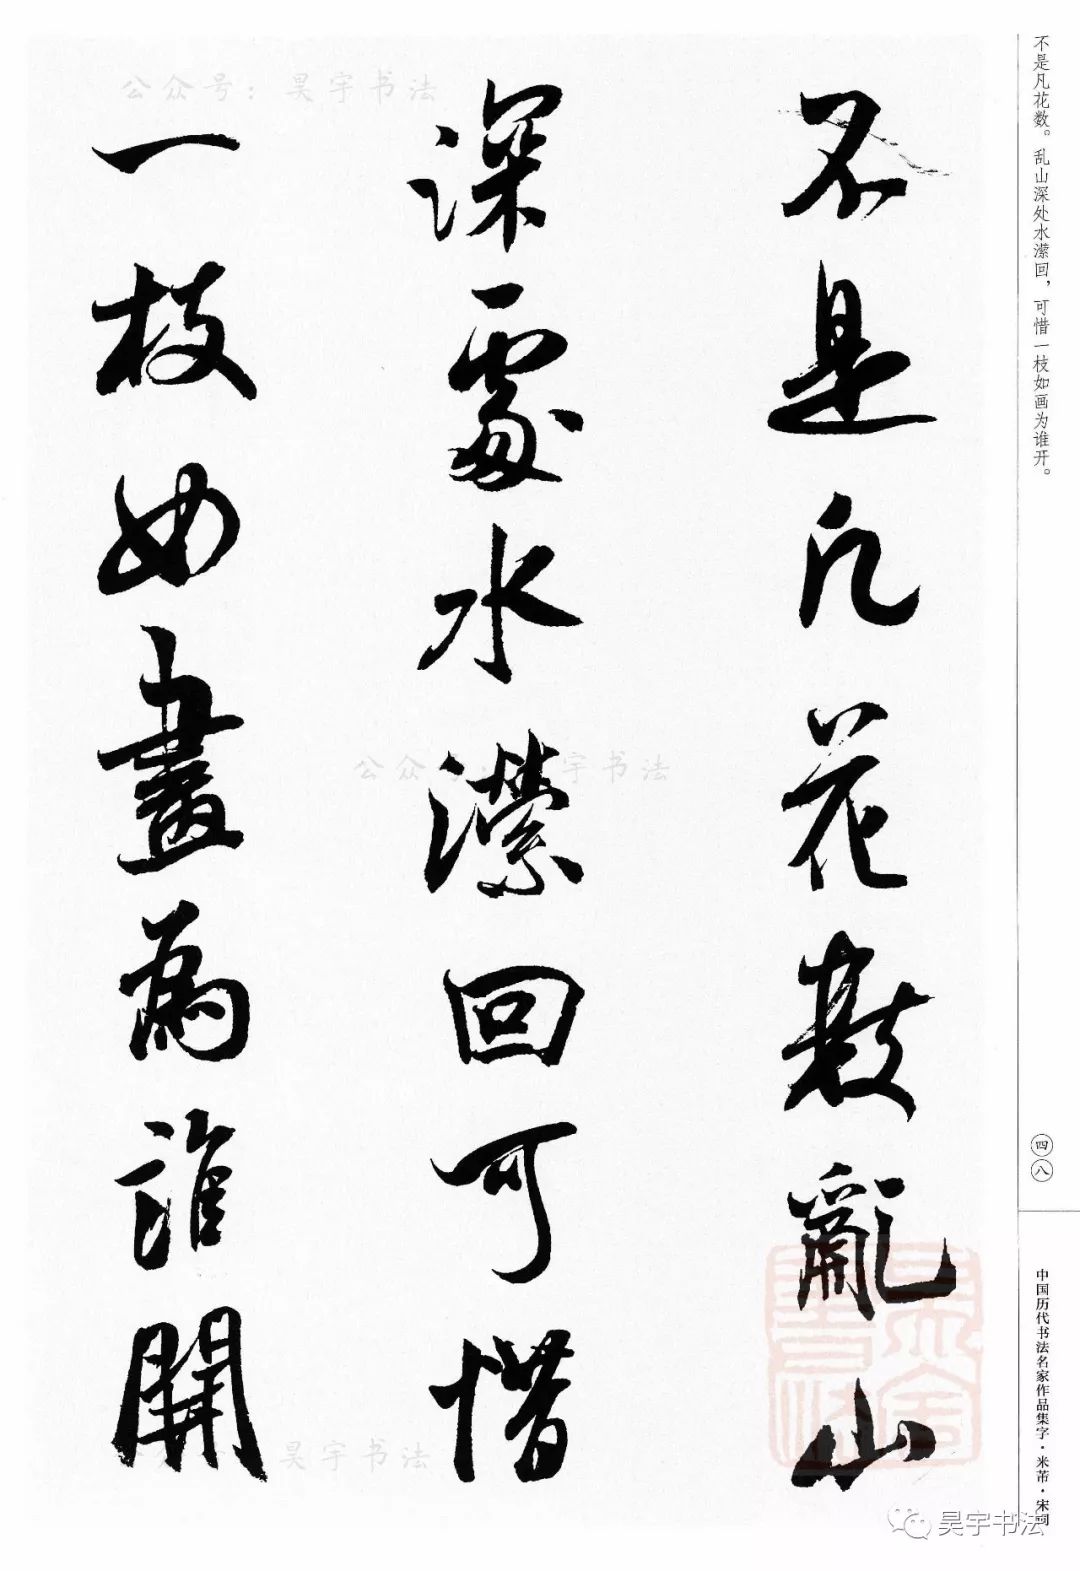 不是凡花数。乱山深处水潆回，可惜一枝如画为谁开。
四八
中国历代书法名家作品集字·米芾·宋词
不是凡花數亂山
深處水瀠回可惜
一枝如畫為誰開
公众号：昊宇书法
公众号 宇书法
昊宇书法
昊宇书法